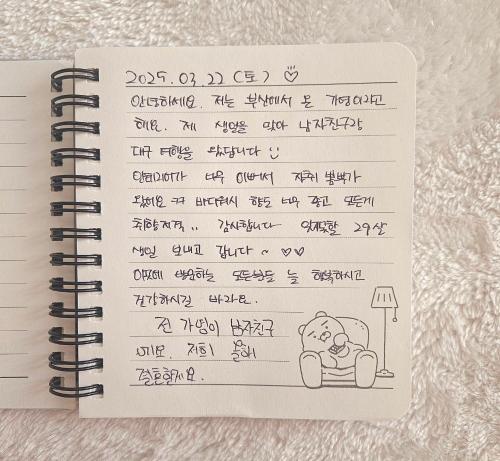 2025.03.22 (토) ♡
안녕하세요. 저는 부산에서 온 가영이라고
해요. 제 생일을 맞아 남자친구랑
대구 여행을 왔답니다 :)
인테리어가 너무 이뻐서 자취 뽐뿌가
왔어요 ㅋㅋ 바디워시 향도 너무 좋고 모든게
취향저격.. 감사합니다 잊지못할 29살
생일 보내고 갑니다~ ♡♡
이곳에 방문하는 모든분들 늘 행복하시고
건강하시길 바라요.
전 가영이 남자친구
에요. 저희 올해
결혼할게요.